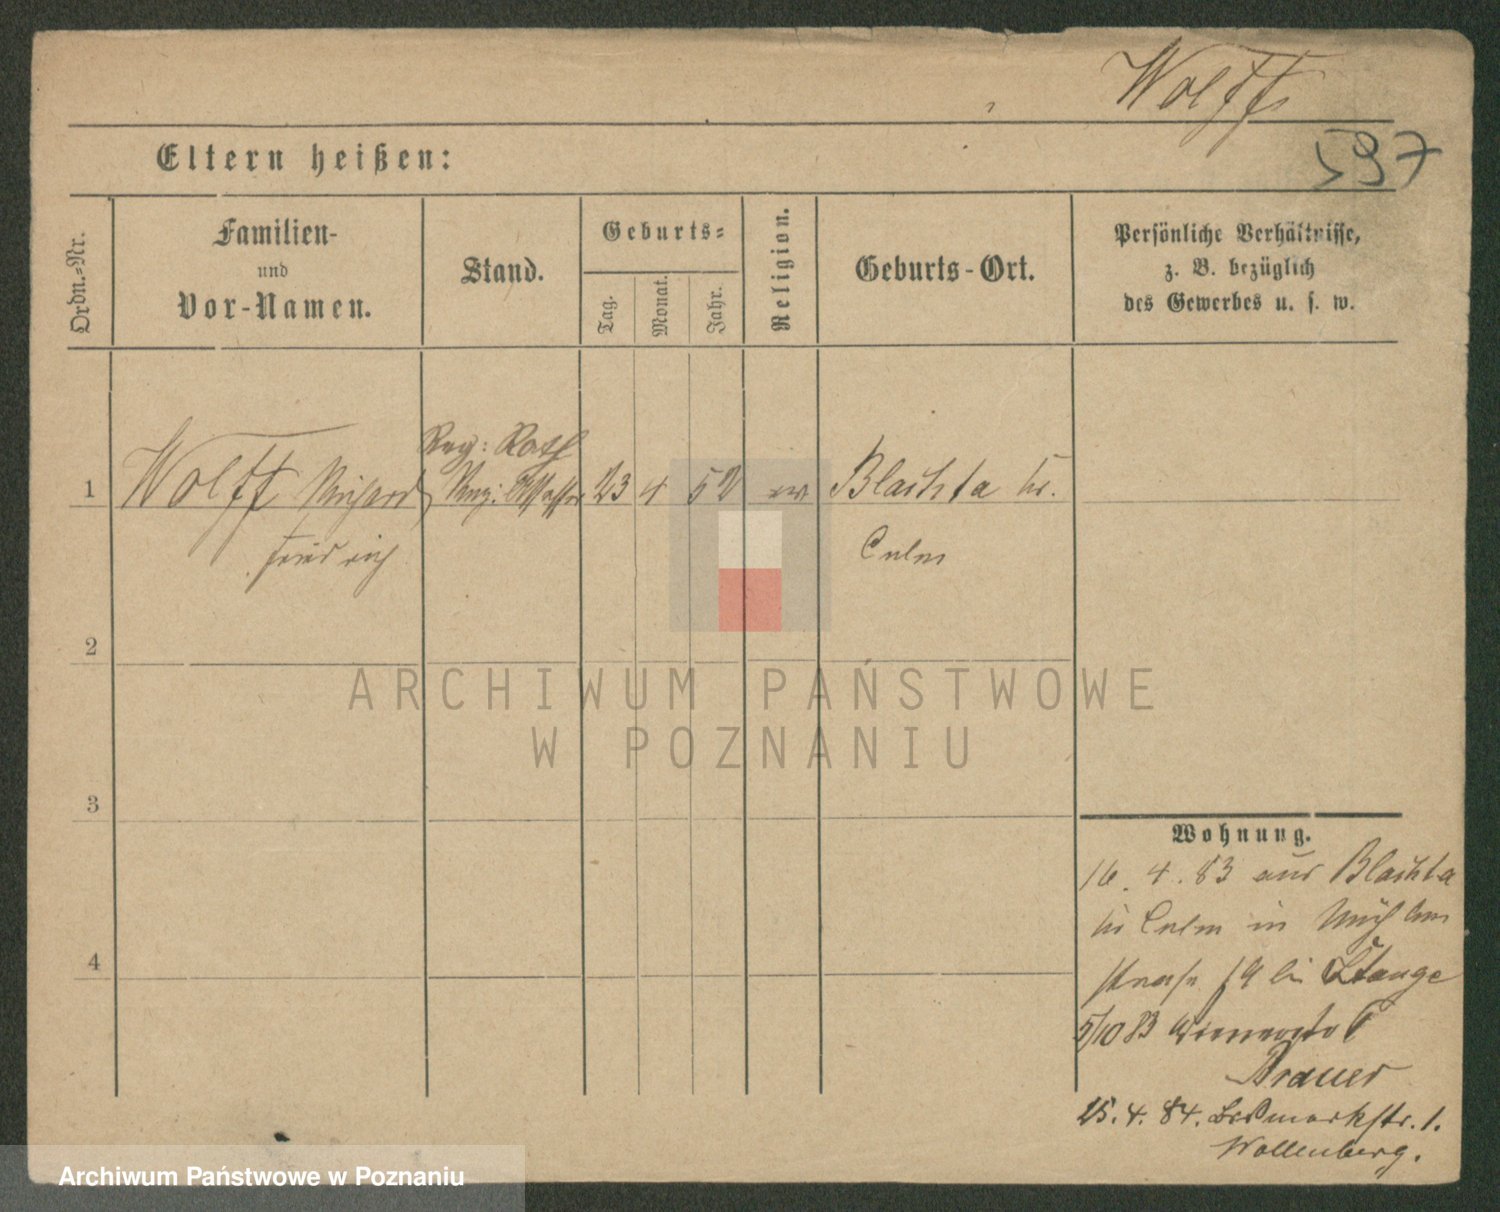 Wolff
597
Eltern heißen:
Ordn.-Nr.
Familien-
und
Vor-Namen.
Stand.
Geburts-
Tag.
Monat.
Jahr.
Religion.
Geburts-Ort.
Persönliche Verhältnisse,
z. B. bezüglich
des Gewerbes u. s. w.
Reg: Rath
1 Wolff Richard Reg: Assessor 23 4 52 ev Blachta Kr.
Friedrich Culm
2
3
4
ARCHIWUM PAŃSTWOWE
W POZNANIU
Wohnung.
16. 4. 83 aus Blachta
Kr Culm in Mühlen
straße 19 bei Stange
5/10 83
Brauer
25. 4. 84. Bismarkstr. 1.
Wollenberg.
Archiwum Państwowe w Poznaniu